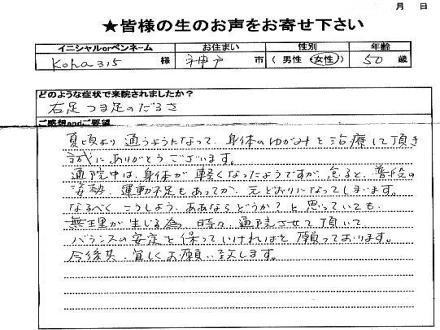 月 日
★皆様の生のお声をお寄せ下さい
イニシャルorペンネーム お住まい 性別 年齢
koha315 様 神戸 市 (男性 女性) 50 歳
どのような症状で来院されましたか?
右足 つま足のだるさ
ご感想・ご要望
夏頃より 通うようになって 身体のゆがみを治療して頂き
誠にありがとうございます。
通院中は、身体が軽くなったようですが、怠ると、普段の
姿勢、運動不足もあってか、元どおりになってしまいます。
なるべく こうしよう、ああならどうか?と思っていても、
無理が生じる為、時々通院させて頂いて
バランスの安定を保っていければと願っております。
今後共、宜しくお願い致します。